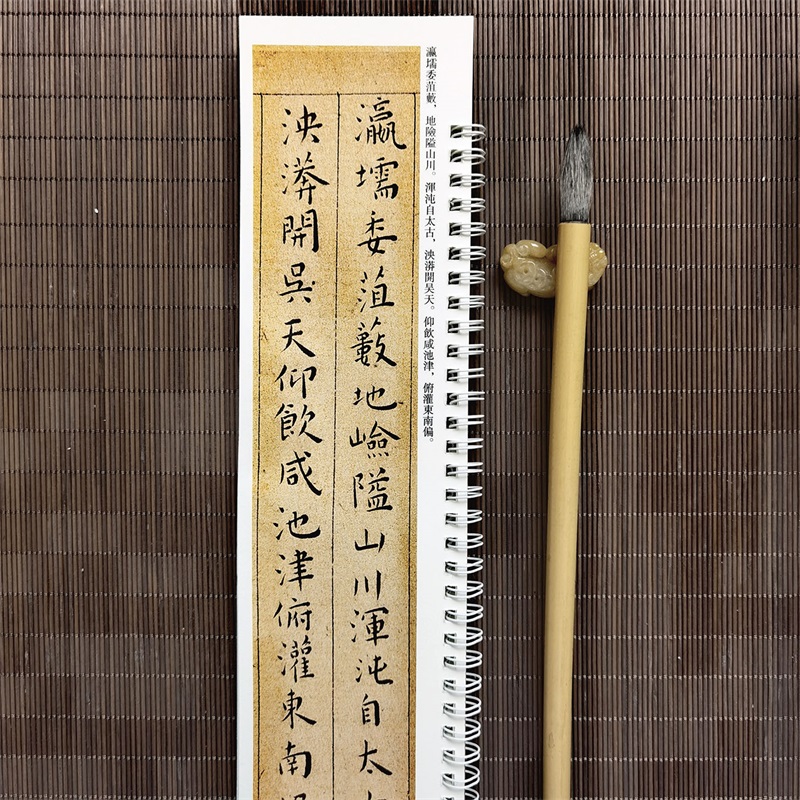 瀛壖委菹藪，地險隘山川。渾沌自太古，泱漭開吴天。仰飲咸池津，俯灌東南偏。
瀛壖委菹藪地嶮隘山川渾沌自太
泱漭開吳天仰飲咸池津俯灌東南